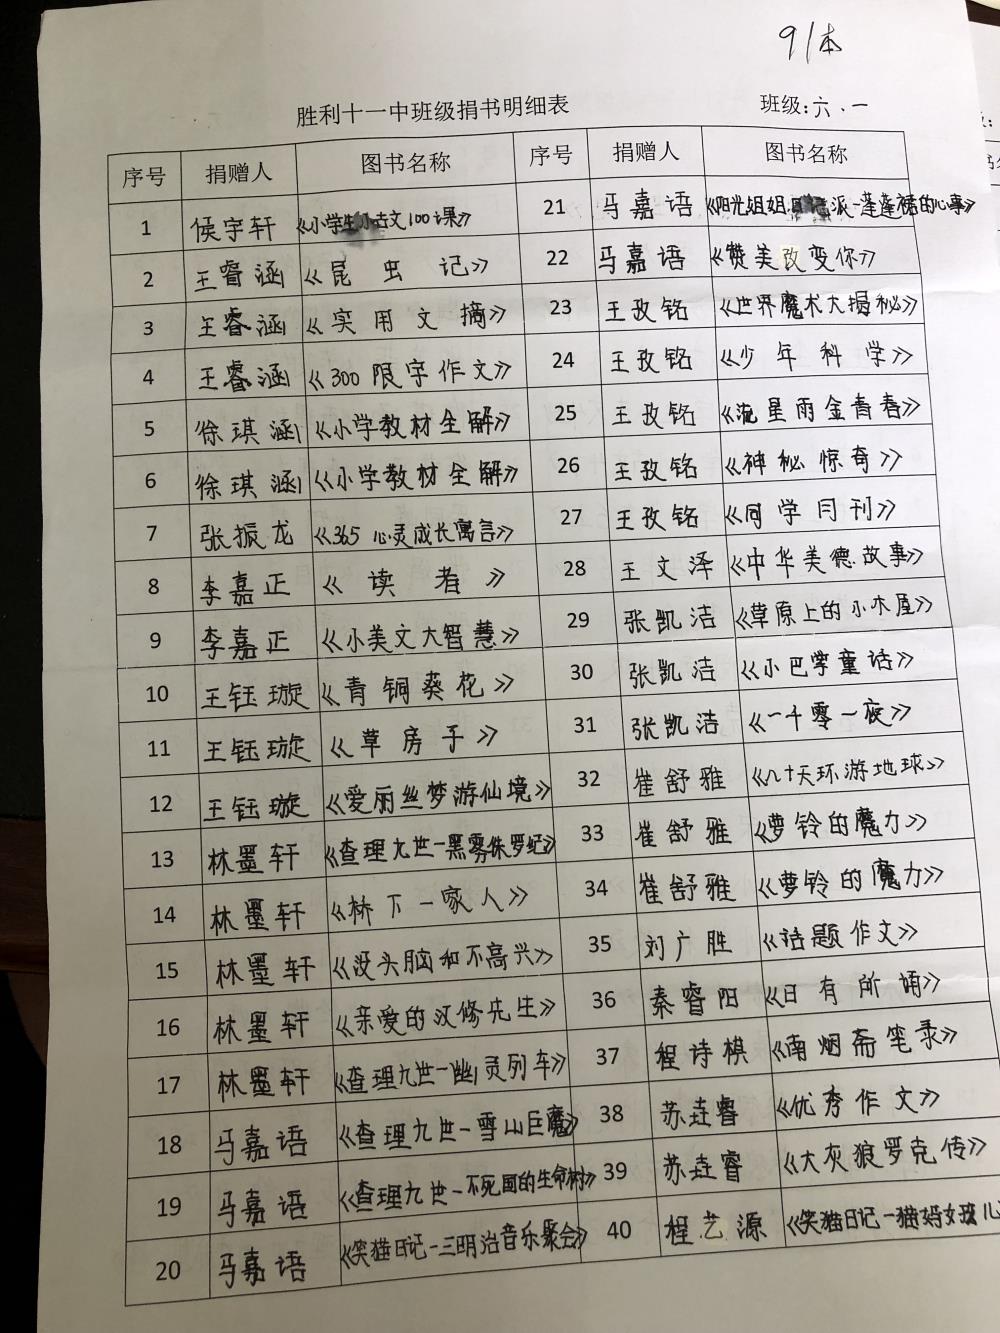 91本
胜利十一中班级捐书明细表 班级:六.一
序号 捐赠人 图书名称 序号 捐赠人 图书名称
1 侯宇轩 《小学生小古文100课》 21 马嘉语 《阳光姐姐 派-蓬蓬裙的心事》
2 王睿涵 《昆虫记》 22 马嘉语 《赞美改变你》
3 王睿涵 《实用文摘》 23 王孜铭 《世界魔术大揭秘》
4 王睿涵 《300限字作文》 24 王孜铭 《少年科学》
5 徐琪涵 《小学教材全解》 25 王孜铭 《流星雨金青春》
6 徐琪涵 《小学教材全解》 26 王孜铭 《神秘惊奇》
7 张振龙 《365心灵成长寓言》 27 王孜铭 《同学月刊》
8 李嘉正 《读者》 28 王文泽 《中华美德故事》
9 李嘉正 《小美文大智慧》 29 张凯洁 《草原上的小木屋》
10 王钰璇 《青铜葵花》 30 张凯洁 《小巴掌童话》
11 王钰璇 《草房子》 31 张凯洁 《一千零一夜》
12 王钰璇 《爱丽丝梦游仙境》 32 崔舒雅 《八十天环游地球》
13 林墨轩 《查理九世-黑雾侏罗纪》 33 崔舒雅 《萝铃的魔力》
14 林墨轩 《桥下一家人》 34 崔舒雅 《萝铃的魔力》
15 林墨轩 《没头脑和不高兴》 35 刘广胜 《话题作文》
16 林墨轩 《亲爱的汉修先生》 36 秦睿阳 《日有所诵》
17 林墨轩 《查理九世-幽灵列车》 37 程诗棋 《南烟斋笔录》
18 马嘉语 《查理九世-雪山巨魔》 38 苏垚睿 《优秀作文》
19 马嘉语 《查理九世-不死国的生命树》 39 苏垚睿 《大灰狼罗克传》
20 马嘉语 《笑猫日记-三明治音乐聚会》 40 程艺源 《笑猫日记-猫妈女孩儿